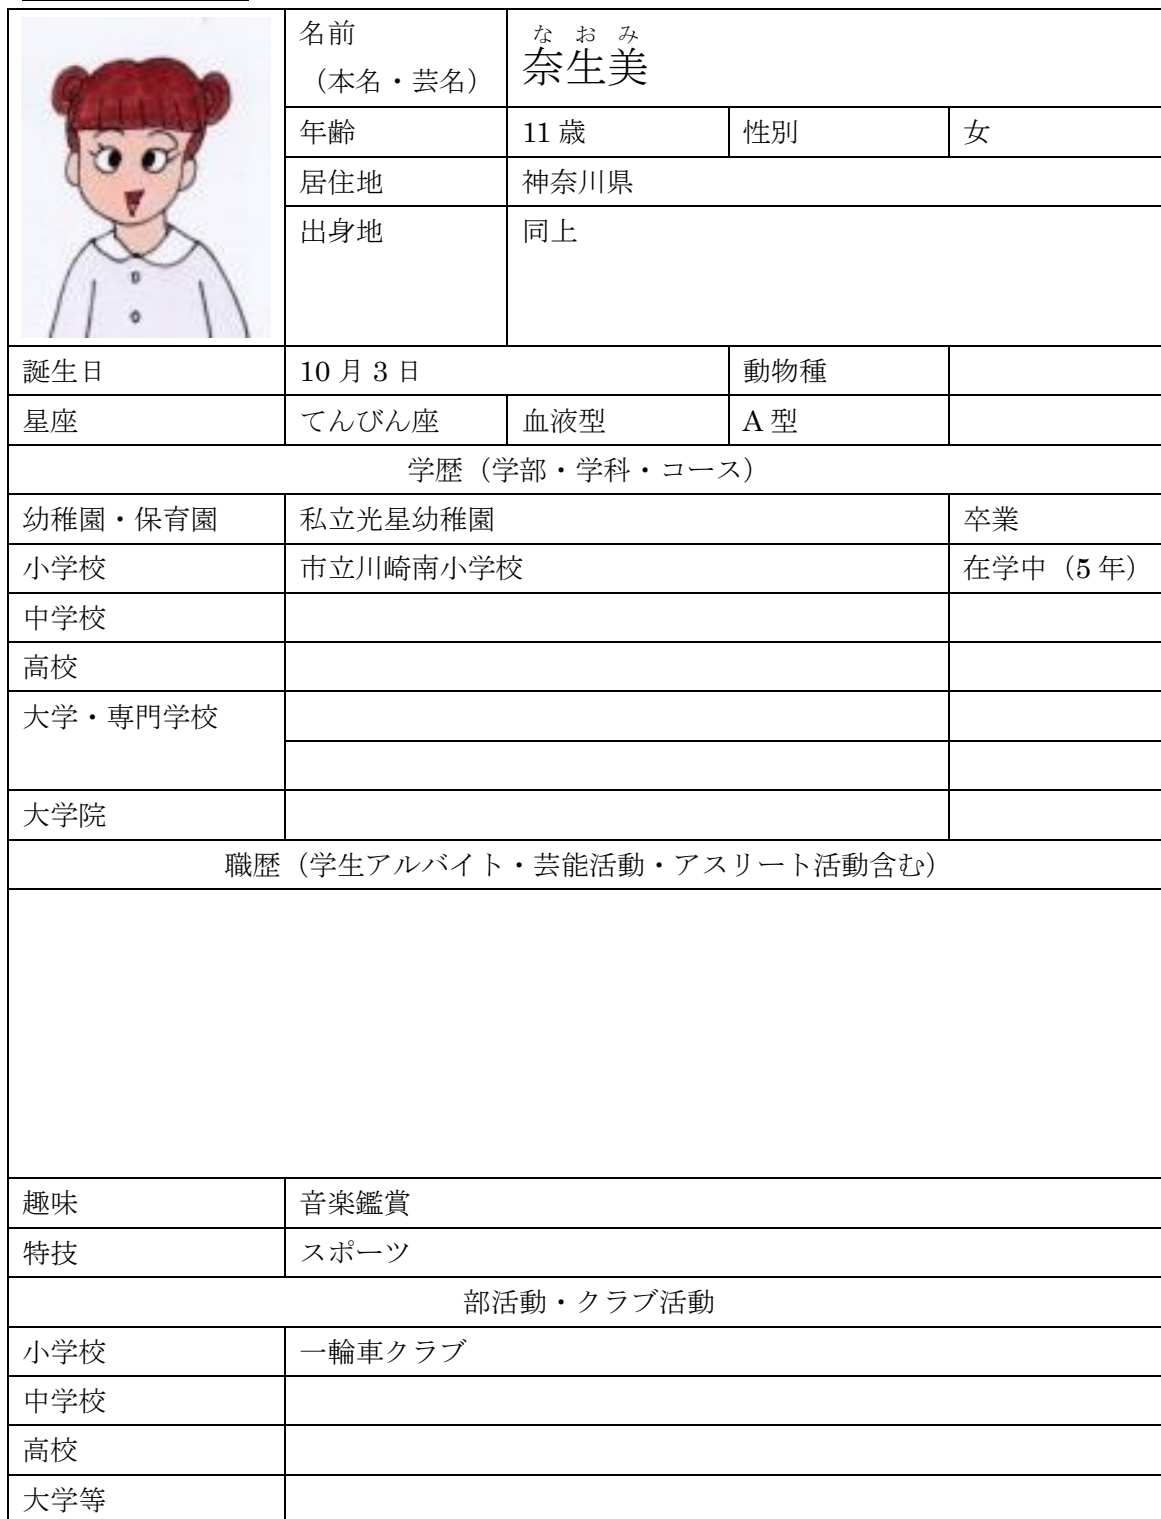 なおみ
名前 奈生美
（本名・芸名）
年齢 11歳 性別 女
居住地 神奈川県
出身地 同上
誕生日 10月3日 動物種
星座 てんびん座 血液型 A型
学歴（学部・学科・コース）
幼稚園・保育園 私立光星幼稚園 卒業
小学校 市立川崎南小学校 在学中（5年）
中学校
高校
大学・専門学校
大学院
職歴（学生アルバイト・芸能活動・アスリート活動含む）
趣味 音楽鑑賞
特技 スポーツ
部活動・クラブ活動
小学校 一輪車クラブ
中学校
高校
大学等